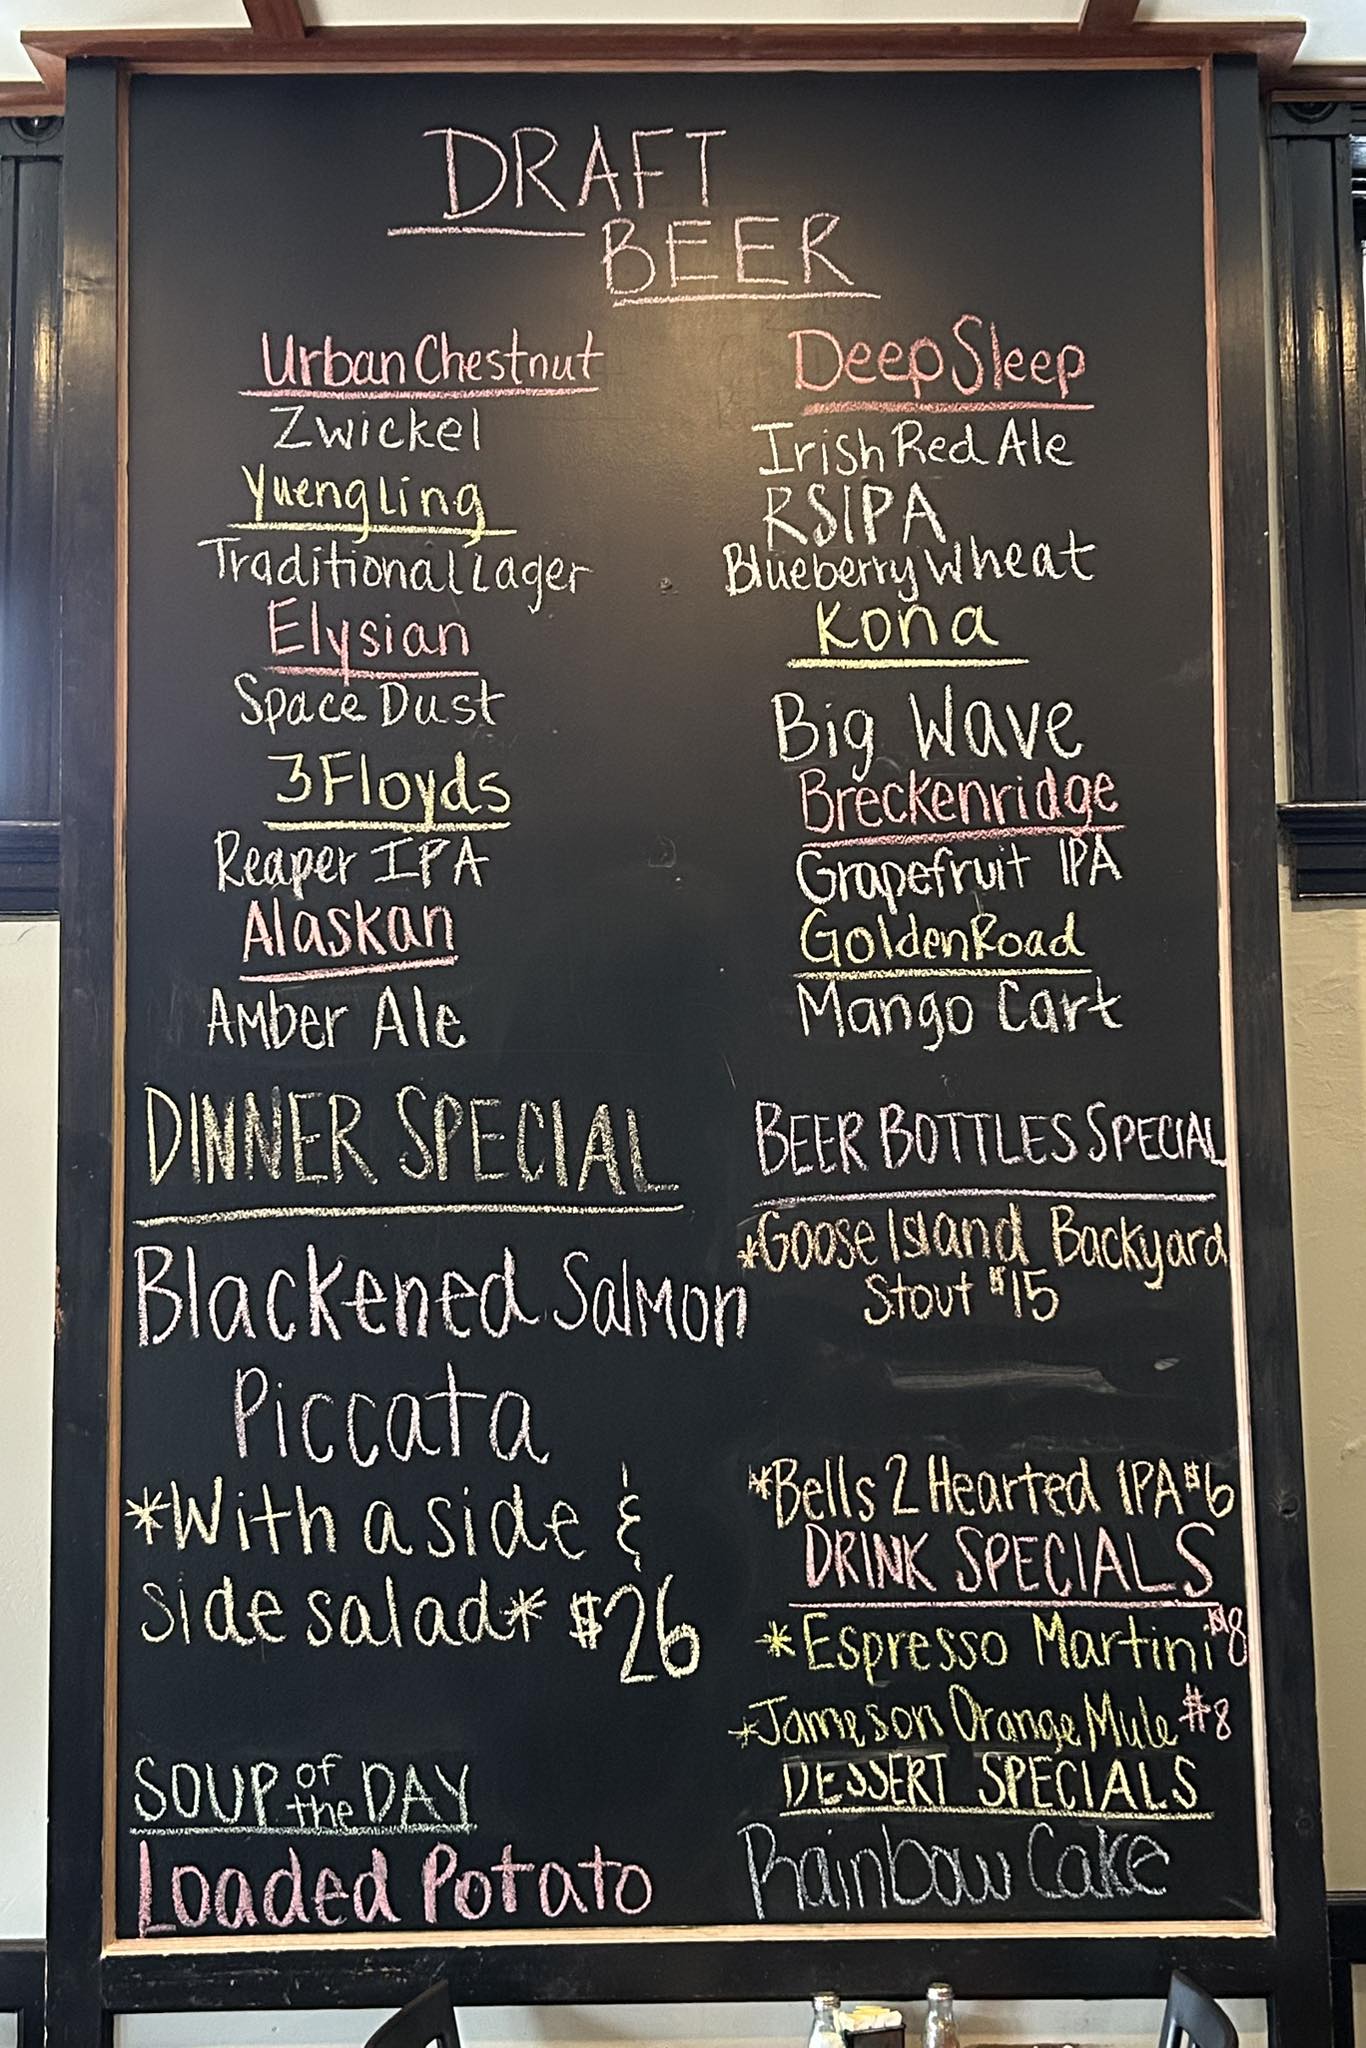 DRAFT
BEER
Urban Chestnut
Zwickel
Yuengling
Traditional Lager
Elysian
Space Dust
3 Floyds
Reaper IPA
Alaskan
Amber Ale
Deep Sleep
Irish Red Ale
RSIPA
Blueberry Wheat
Kona
Big Wave
Breckenridge
Grapefruit IPA
Golden Road
Mango Cart
DINNER SPECIAL
Blackened Salmon
Piccata
*With a side &
side salad* $26
SOUP of the DAY
Loaded Potato
BEER BOTTLES SPECIAL
*Goose Island Backyard
Stout $15
*Bells 2 Hearted IPA $6
DRINK SPECIALS
*Espresso Martini $8
*Jameson Orange Mule $8
DESSERT SPECIALS
Rainbow Cake